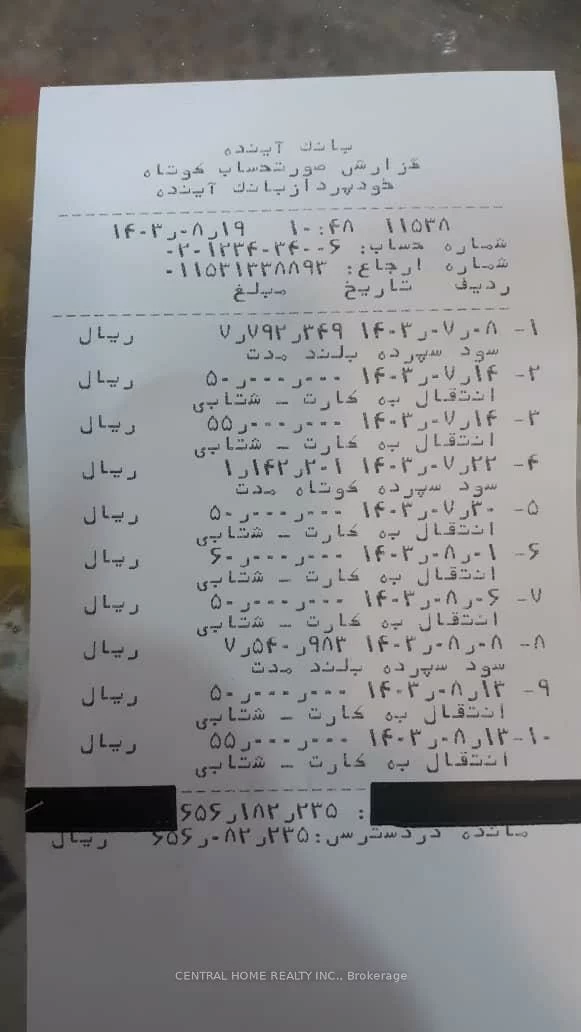 بانک آینده
گزارش صورتحساب کوتاه
خودپردازبانک آینده
۱۱۵۳۸ ۱۰:۴۸ ۱۴۰۳ر۰۸ر۱۹
شماره حساب: ۰۲۰۱۲۳۴۰۳۴۰۰۶
شماره ارجاع: ۰۱۱۵۳۱۳۳۸۸۹۳
ردیف تاریخ مبلغ
۱- ۱۴۰۳ر۰۷ر۰۸ ۷ر۷۹۲ر۳۴۹ ریال
سود سپرده بلند مدت
۲- ۱۴۰۳ر۰۷ر۱۴ ۵۰ر۰۰۰ر۰۰۰ ریال
انتقال به کارت - شتابی
۳- ۱۴۰۳ر۰۷ر۱۴ ۵۵ر۰۰۰ر۰۰۰ ریال
انتقال به کارت - شتابی
۴- ۱۴۰۳ر۰۷ر۲۲ ۱ر۱۴۲ر۲۰۱ ریال
سود سپرده کوتاه مدت
۵- ۱۴۰۳ر۰۷ر۳۰ ۵۰ر۰۰۰ر۰۰۰ ریال
انتقال به کارت - شتابی
۶- ۱۴۰۳ر۰۸ر۰۱ ۶۰ر۰۰۰ر۰۰۰ ریال
انتقال به کارت - شتابی
۷- ۱۴۰۳ر۰۸ر۰۶ ۵۰ر۰۰۰ر۰۰۰ ریال
انتقال به کارت - شتابی
۸- ۱۴۰۳ر۰۸ر۰۸ ۷ر۵۴۰ر۹۸۳ ریال
سود سپرده بلند مدت
۹- ۱۴۰۳ر۰۸ر۱۳ ۵۰ر۰۰۰ر۰۰۰ ریال
انتقال به کارت - شتابی
۱۰- ۱۴۰۳ر۰۸ر۱۳ ۵۵ر۰۰۰ر۰۰۰ ریال
انتقال به کارت - شتابی
: ۶۵۶ر۱۸۲ر۲۳۵
مانده دردسترس: ۶۵۶ر۰۸۲ر۲۳۵ ریال
CENTRAL HOME REALTY INC., Brokerage